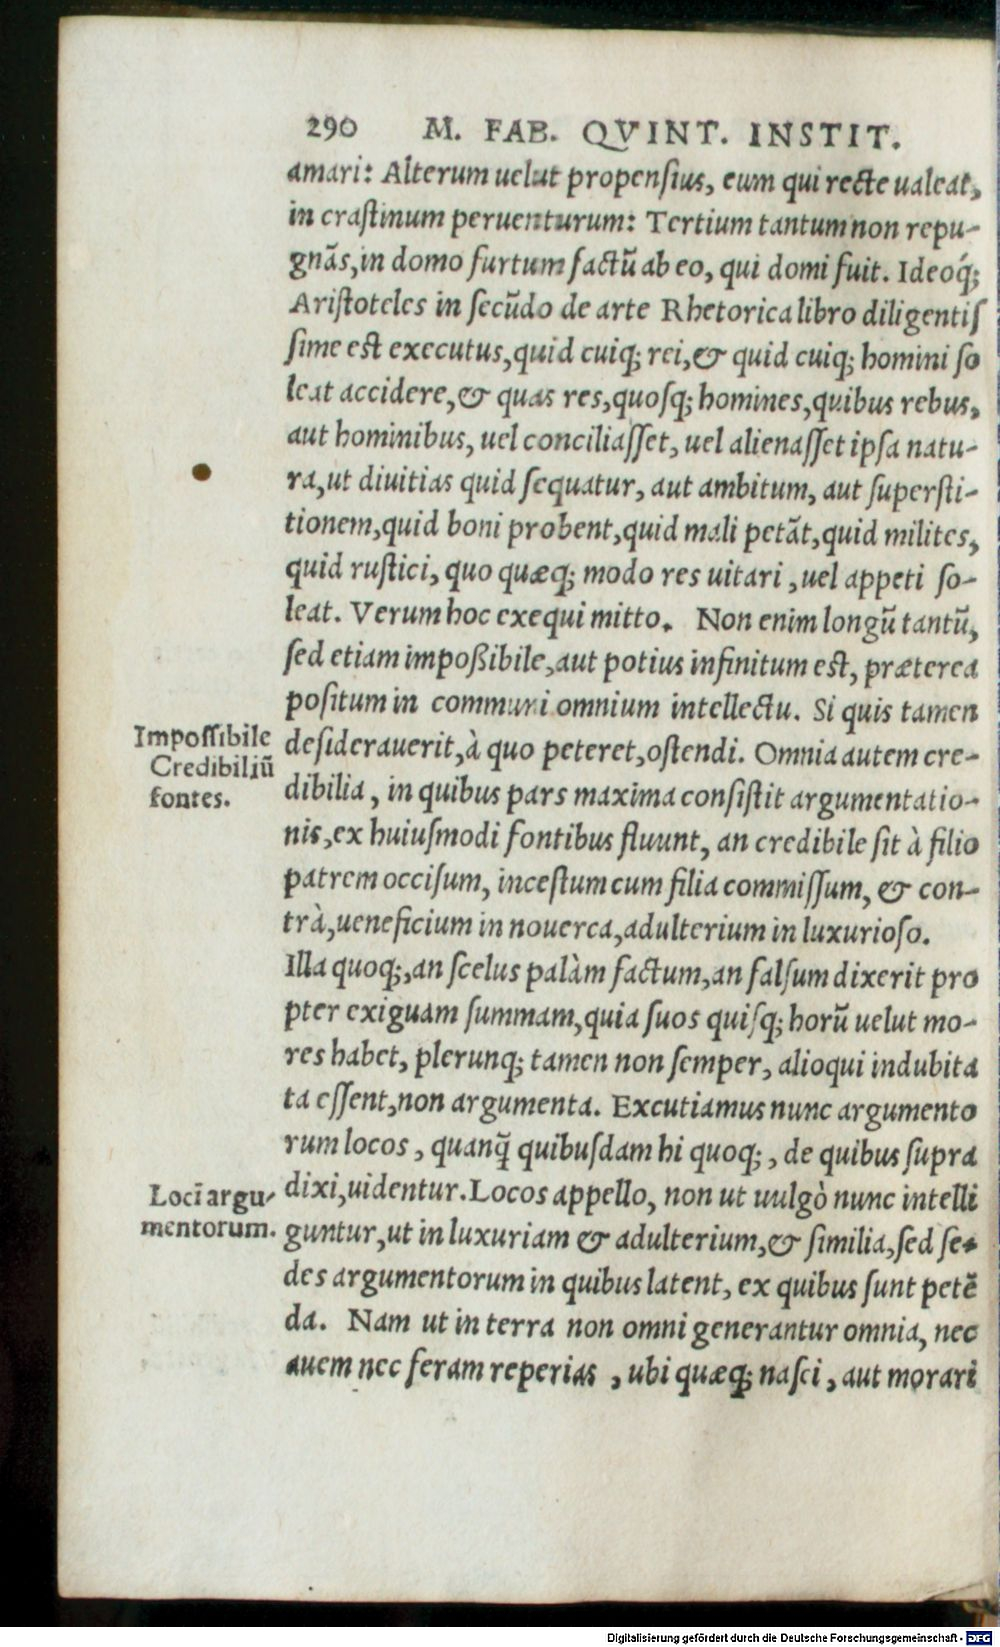 290 M. FAB. QVINT. INSTIT.
amari: Alterum uelut propensius, eum qui recte ualeat,
in craſtinum peruenturum: Tertium tantum non repu-
gnãs, in domo furtum factũ ab eo, qui domi fuit. Ideoq́;
Ariſtoteles in ſecũdo de arte Rhetorica libro diligentiſ
ſime eſt executus, quid cuiq; rei, & quid cuiq; homini ſo
leat accidere, & quas res, quoſq; homines, quibus rebus,
aut hominibus, uel conciliaſſet, uel alienaſſet ipſa natu-
ra, ut diuitias quid ſequatur, aut ambitum, aut ſuperſti-
tionem, quid boni probent, quid mali petãt, quid milites,
quid ruſtici, quo quæq; modo res uitari, uel appeti ſo-
leat. Verum hoc exequi mitto. Non enim longũ tantũ,
ſed etiam impoßibile, aut potius infinitum eſt, præterea
poſitum in communi omnium intellectu. Si quis tamen
Impoſſibile
deſiderauerit, à quo peteret, oſtendi. Omnia autem cre-
Credibiliũ
fontes.
dibilia, in quibus pars maxima conſiſtit argumentatio-
nis, ex huiuſmodi fontibus fluunt, an credibile ſit à filio
patrem occiſum, inceſtum cum filia commiſſum, & con-
trà, ueneficium in nouerca, adulterium in luxurioſo.
Illa quoq;, an ſcelus palàm factum, an falſum dixerit pro
pter exiguam ſummam, quia ſuos quiſq; horũ uelut mo-
res habet, plerunq; tamen non ſemper, alioqui indubita
ta eſſent, non argumenta. Excutiamus nunc argumento
rum locos, quanq̃ quibuſdam hi quoq;, de quibus ſupra
Loci argu-
dixi, uidentur. Locos appello, non ut uulgò nunc intelli
mentorum.
guntur, ut in luxuriam & adulterium, & ſimilia, ſed ſe-
des argumentorum in quibus latent, ex quibus ſunt petẽ
da. Nam ut in terra non omni generantur omnia, nec
auem nec feram reperias, ubi quæq; naſci, aut morari
Digitalisierung gefördert durch die Deutsche Forschungsgemeinschaft - DFG